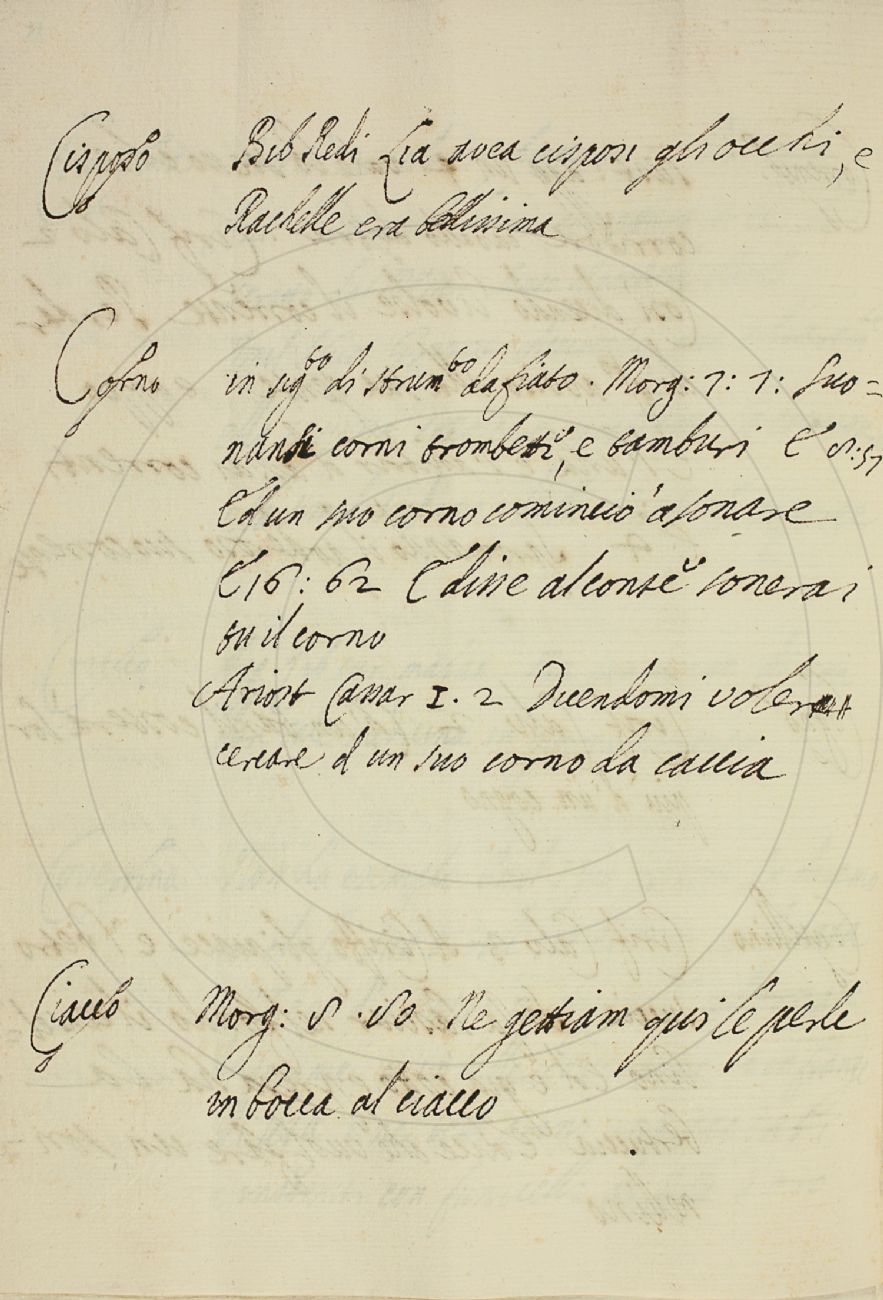 Cisposo Bib Redi Lia avea cisposi gli occhi, e
Rachelle era bellissima
Corno in sig.to di strum.to da fiato. Morg: 7: 7: Suo=
nandi corni trombetti, e tamburi E 8:57
Ed un suo corno cominciò a sonare
E 16: 62 E disse al conte sonerai
tu il corno
Ariost Cassar I. 2 Dicendomi voler
cercare d un suo corno da caccia
Ciacco Morg: 8. 80 Ne gettiam qui le perle
in bocca al ciacco